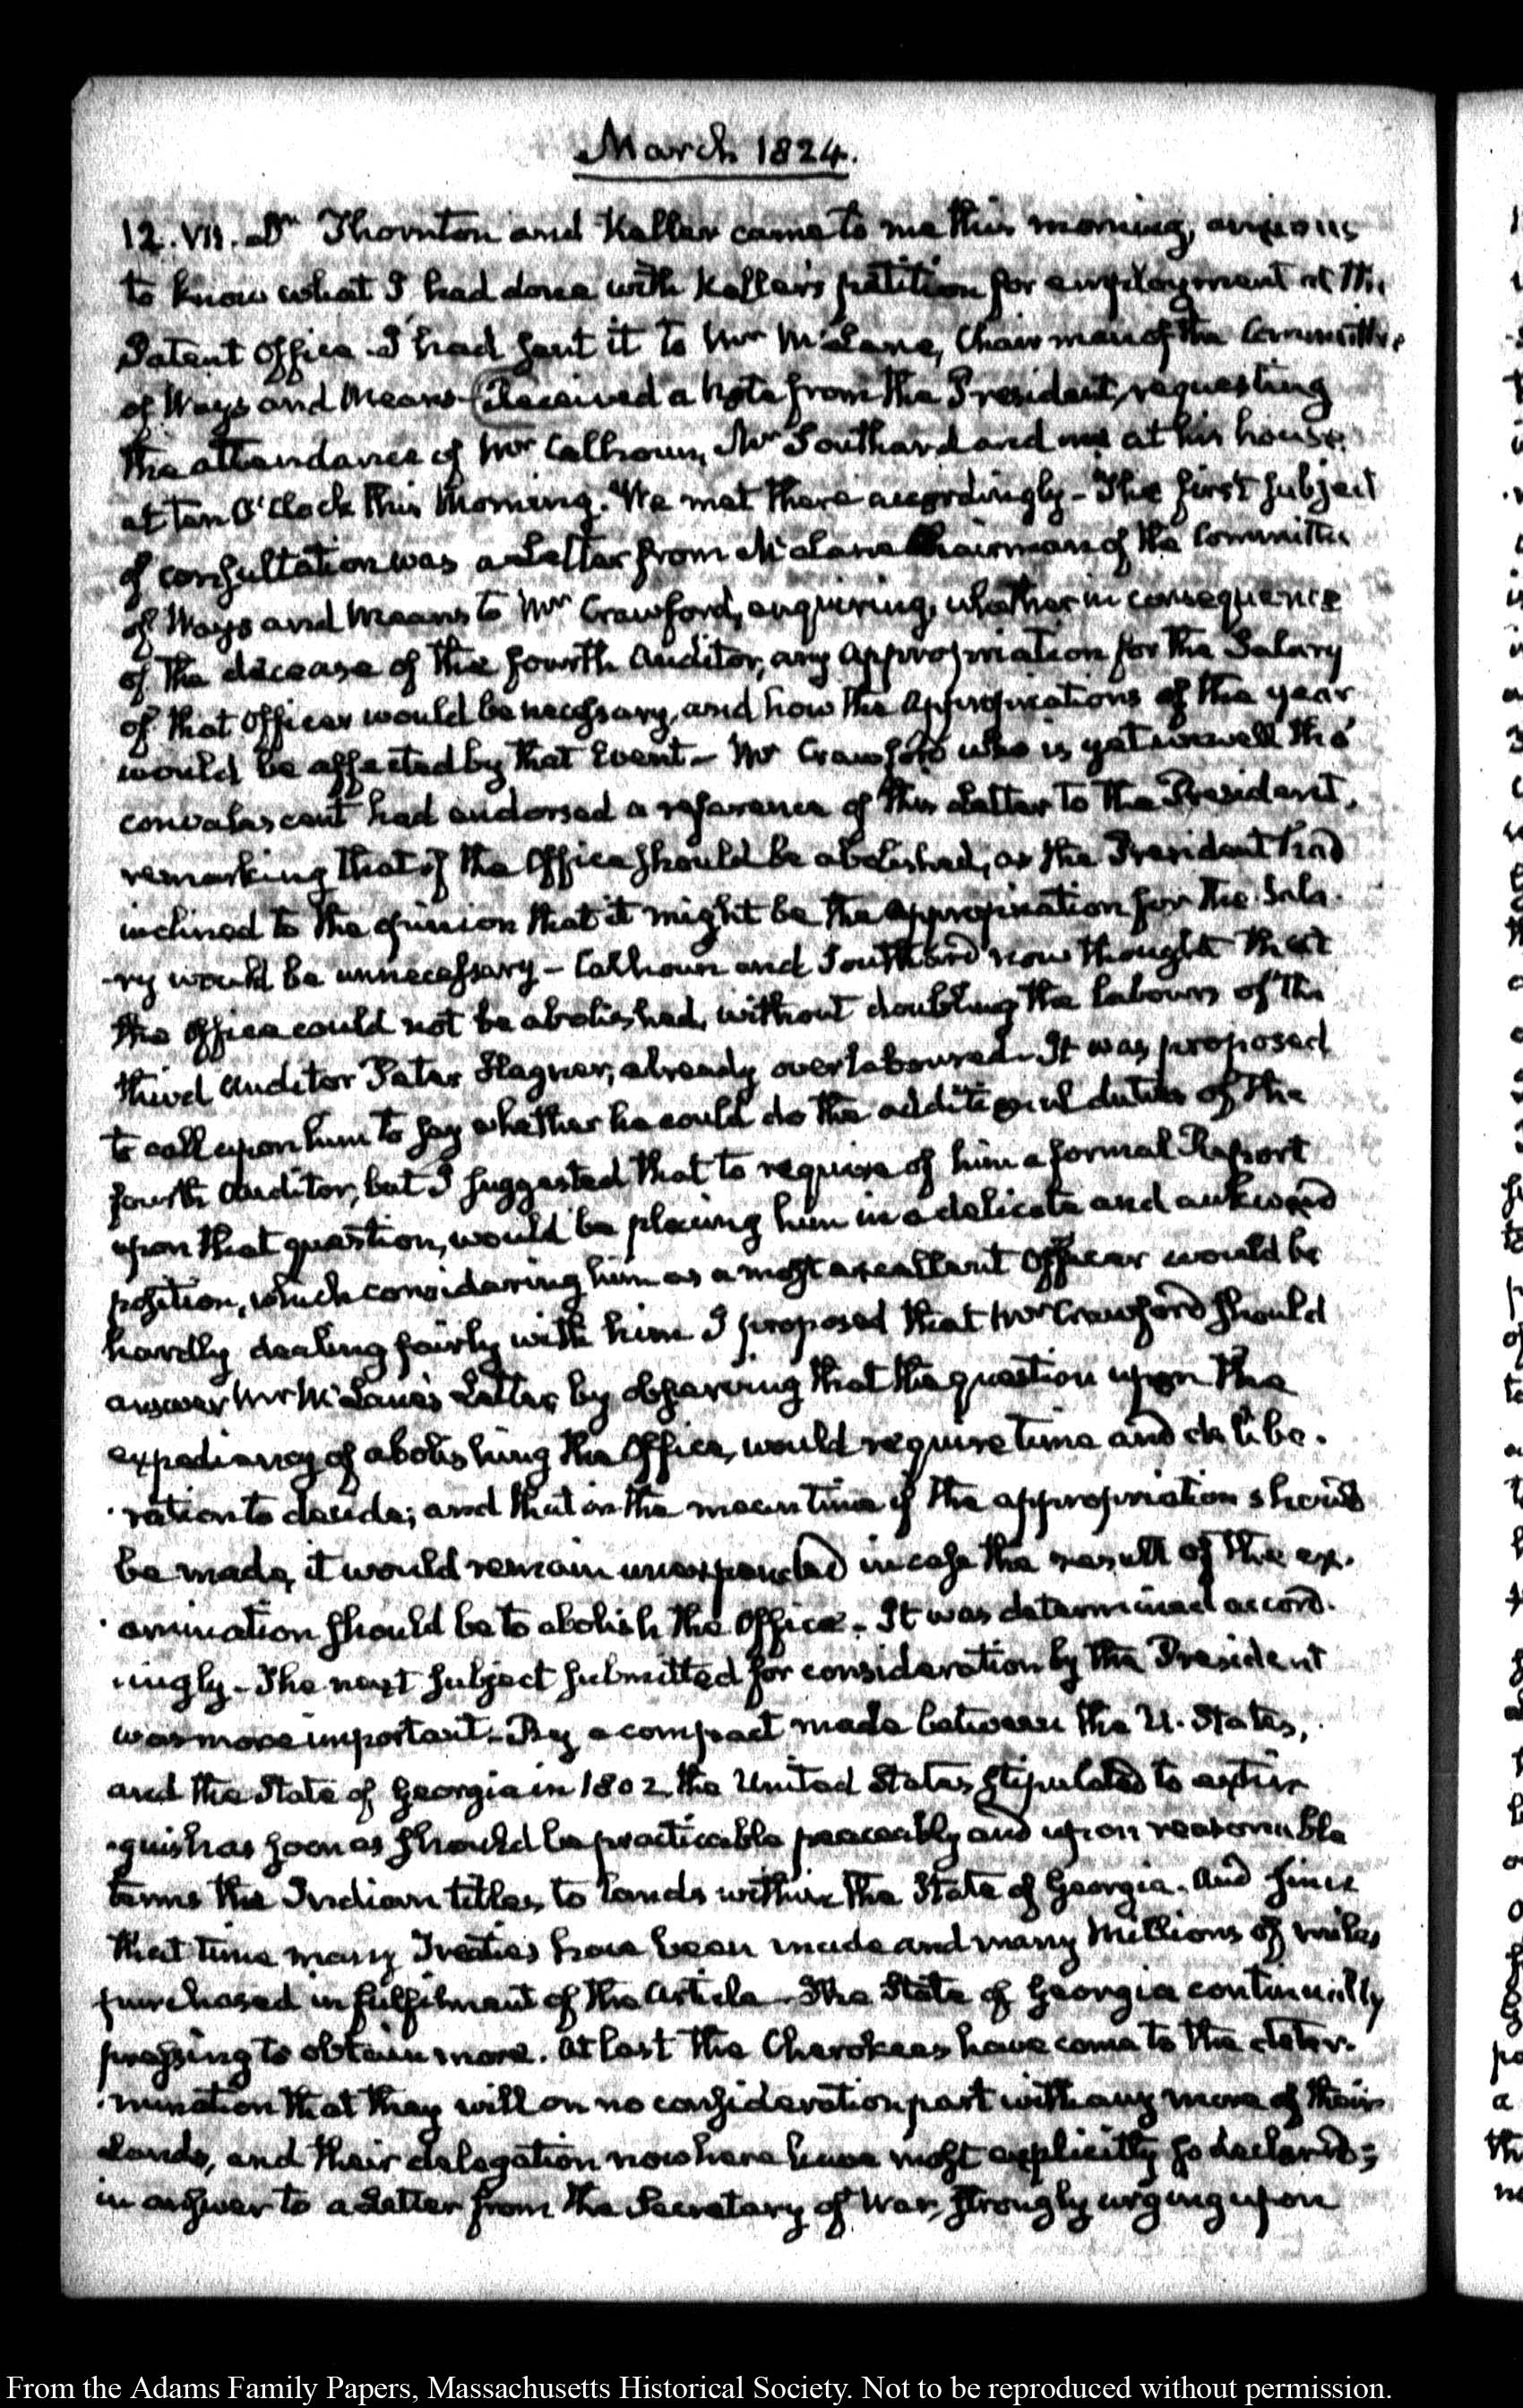 March 1824.
12. VII. Dr Thornton and Keller came to me this morning, anxious
to know what I had done with Keller's petition for employment at the
Patent Office. I had sent it to Mr McLane, Chairman of the Committee
of Ways and Means - Received a Note from the President, requesting
the attendance of Mr Calhoun, Mr Southard and me at his house
at ten O'Clock this Morning. We met there accordingly - The first subject
of consultation was a Letter from McLane Chairman of the Committee
of Ways and Means to Mr Crawford, enquiring, whether in consequence
of the decease of the fourth Auditor, any appropriation for the Salary
of that Officer would be necessary, and how the appropriations of the year
would be affected by that Event - Mr Crawford who is yet unwell tho'
convalescent had endorsed a reference of this Letter to the President,
remarking that if the Office should be abolished, as the President had
inclined to the opinion that it might be the appropriation for the Sala-
-ry would be unnecessary - Calhoun and Southard now thought that
the Office could not be abolished, without doubling the labours of the
third Auditor Peter Hagner, already overlaboured - It was proposed
to call upon him to say whether he could do the additional duties of the
fourth Auditor, but I suggested that to require of him a formal Report
upon that question, would be placing him in a delicate and aukward
position, which considering him as a most excellent Officer would be
hardly dealing fairly with him I proposed that Mr Crawford should
answer Mr McLane's Letter, by observing that the question upon the
expediency of abolishing the Office, would require time and delibe-
-ration to decide; and that in the mean time if the appropriation should
be made, it would remain unexpended in case the result of the ex-
-amination should be to abolish the Office - It was determined accord-
-ingly - The next subject submitted for consideration by the President
was more important - By a compact made between the U. States,
and the State of Georgia in 1802 the United States stipulated to extin
-guish as soon as should be practicable peaceably and upon reasonable
terms the Indian titles, to lands within the State of Georgia. And since
that time many Treaties have been made and many Millions of miles
purchased in fulfilment of the Article - The State of Georgia continually
pressing to obtain more. At last the Cherokees have come to the deter-
-mination that they will on no consideration part with any more of their
Lands, and their delegation now here have most explicitly so declared;
in answer to a Letter from the Secretary of War, strongly urging upon
From the Adams Family Papers, Massachusetts Historical Society. Not to be reproduced without permission.